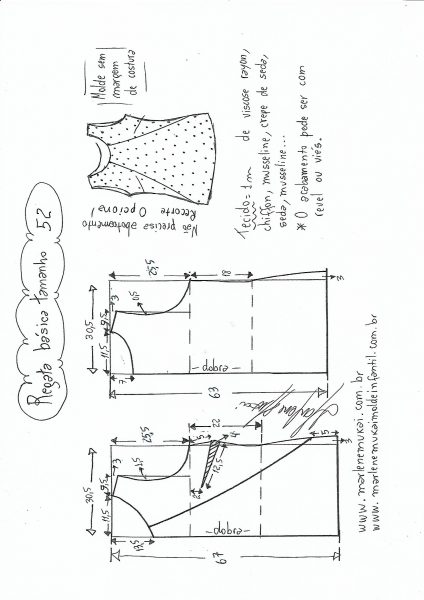 Regata básica tamanho 52
Molde sem
margem
de costura
Não precisa abotoamento
Recorte Opcional
Tecido = 1m de viscose rayon,
chiffon, musseline, crepe de seda,
seda, musseline...
* O acabamento pode ser com
revel ou viés.
30,5
11,5
9,5
3
7
25,5
18
1,5
63
-dobra-
3
30,5
11,5
9,5
3
17,5
25,5
22
1,5
5
4
12,5
2
15
3
67
-dobra-
www.marlenemukai.com.br
www.marlenemukaimoldeinfantil.com.br